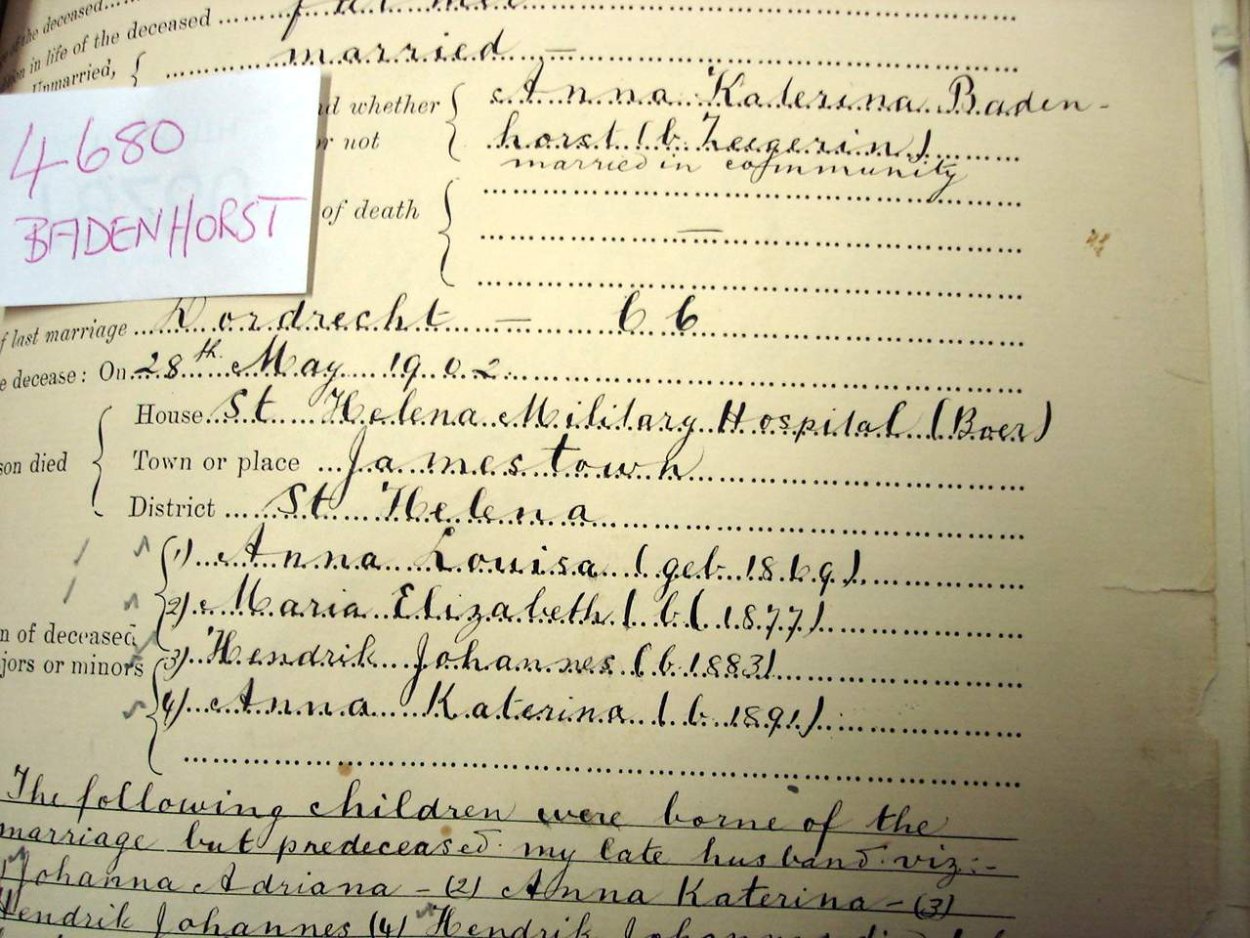 of the deceased
in life of the deceased
Unmarried,
married —
nd whether
Anna Katerina Baden-
r not
horst (b Zeegerin)
married in community
4680
BADENHORST
of death
—
f last marriage Dordrecht — 66
e decease: On 28th May 1902.
House St Helena Military Hospital (Boer)
son died
Town or place Jamestown
District St Helena
(1) Anna Louisa (geb 1869)
(2) Maria Elizabeth (b( 1877)
n of deceased,
jors or minors
(3) Hendrik Johannes (b 1883)
(4) Anna Katerina (b 1891)
The following children were borne of the
marriage but predeceased my late husband viz:-
Johanna Adriana - (2) Anna Katerina - (3)
Hendrik Johannes (4) Hendrik Johannes